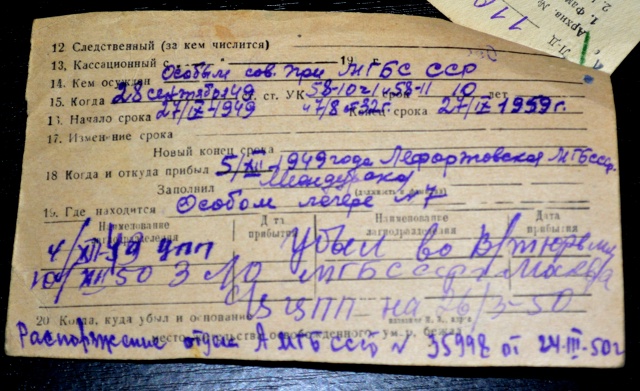 12 Следственный (за кем числится)
13. Кассационный с 19 г.
14. Кем осужден Особым сов. при МГБ С ССР
15. Когда 28 сентября 49 ст. УК 58-10 ч1 58-11 срок 10 лет
16. Начало срока 27/IX-1949 Конец срока 27/IX 1959 г.
17. Изменение срока
Новый конец срока
18 Когда и откуда прибыл 5/XII-1949 года Лефортовская МГБ ССР.
Заполнил
19. Где находится Особом лагере №7
Наименование Дата Наименование Дата
прибытия лагподразделения прибытия
4/XII-49 ЦПП Убыл во В/тюрьму
50 МГБ СССР г Москва
Из ЦПП на 26/3-50
20 Когда, куда убыл и основание
Распоряжение отдел А МГБ СССР № 35998 от 24-III-50 г
Архив. №
1. Фам
Л-Д